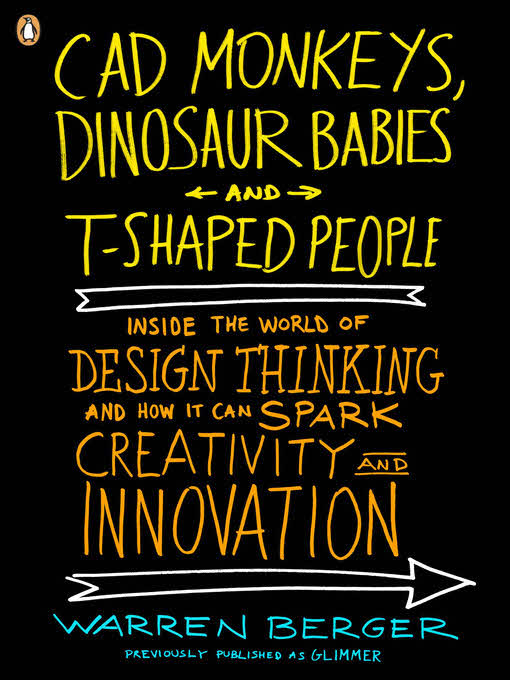 CAD MONKEYS,
DINOSAUR BABIES
AND
T-SHAPED PEOPLE
INSIDE THE WORLD OF
DESIGN THINKING
AND HOW IT CAN SPARK
CREATIVITY AND
INNOVATION
WARREN BERGER
PREVIOUSLY PUBLISHED AS GLIMMER